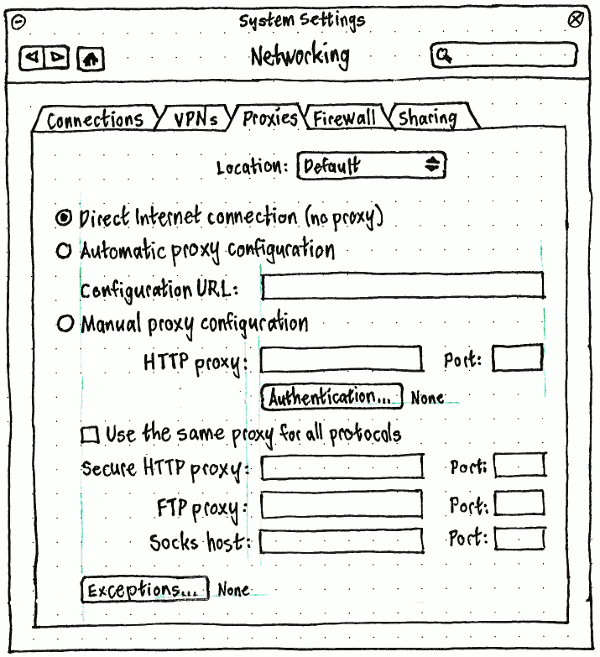 System Settings
Networking
Connections VPNs Proxies Firewall Sharing
Location: Default
Direct Internet connection (no proxy)
Automatic proxy configuration
Configuration URL:
Manual proxy configuration
HTTP proxy: Port:
Authentication... None
Use the same proxy for all protocols
Secure HTTP proxy: Port:
FTP proxy: Port:
Socks host: Port:
Exceptions... None